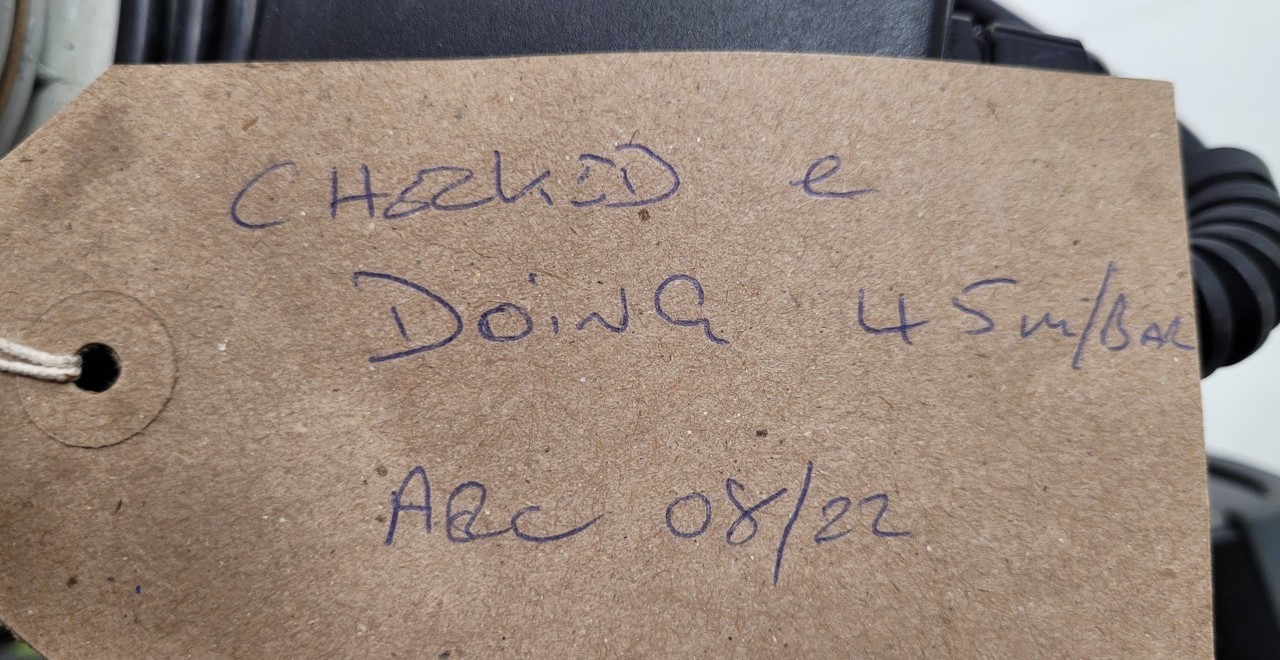 CHECKED e
DOING 45m/BAR
ABC 08/22